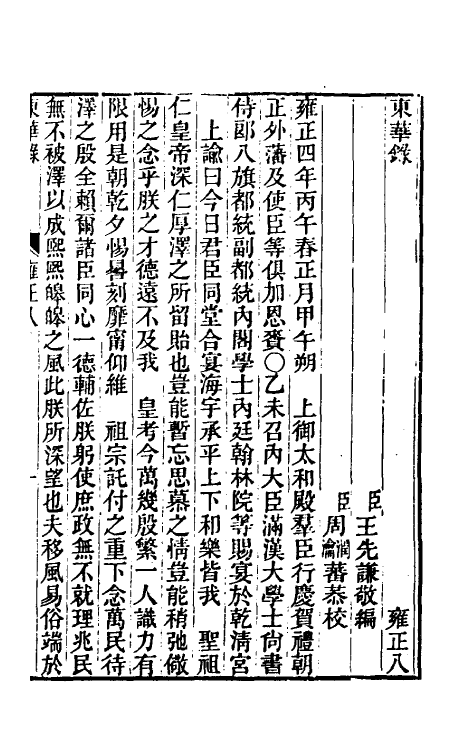 東華錄 雍正八
臣王先謙敬編
臣周潤蕃瀹蕃恭校
雍正四年丙午春正月甲午朔 上御太和殿羣臣行慶賀禮朝
正外藩及使臣等俱加恩賚〇乙未召內大臣滿漢大學士尙書
侍郎八旗都統副都統內閣學士內廷翰林院等賜宴於乾淸宮
上諭曰今日君臣同堂合宴海宇承平上下和樂皆我 聖祖
仁皇帝深仁厚澤之所留貽也豈能暫忘思慕之情豈能稍弛儆
惕之念乎朕之才德遠不及我 皇考今萬幾殷繁一人識力有
限用是朝乾夕惕晷刻靡甯仰維 祖宗託付之重下念萬民待
澤之殷全賴爾諸臣同心一德輔佐朕躬使庶政無不就理兆民
無不被澤以成熙熙皞皞之風此朕所深望也夫移風易俗端於
東華錄 雍正八 一